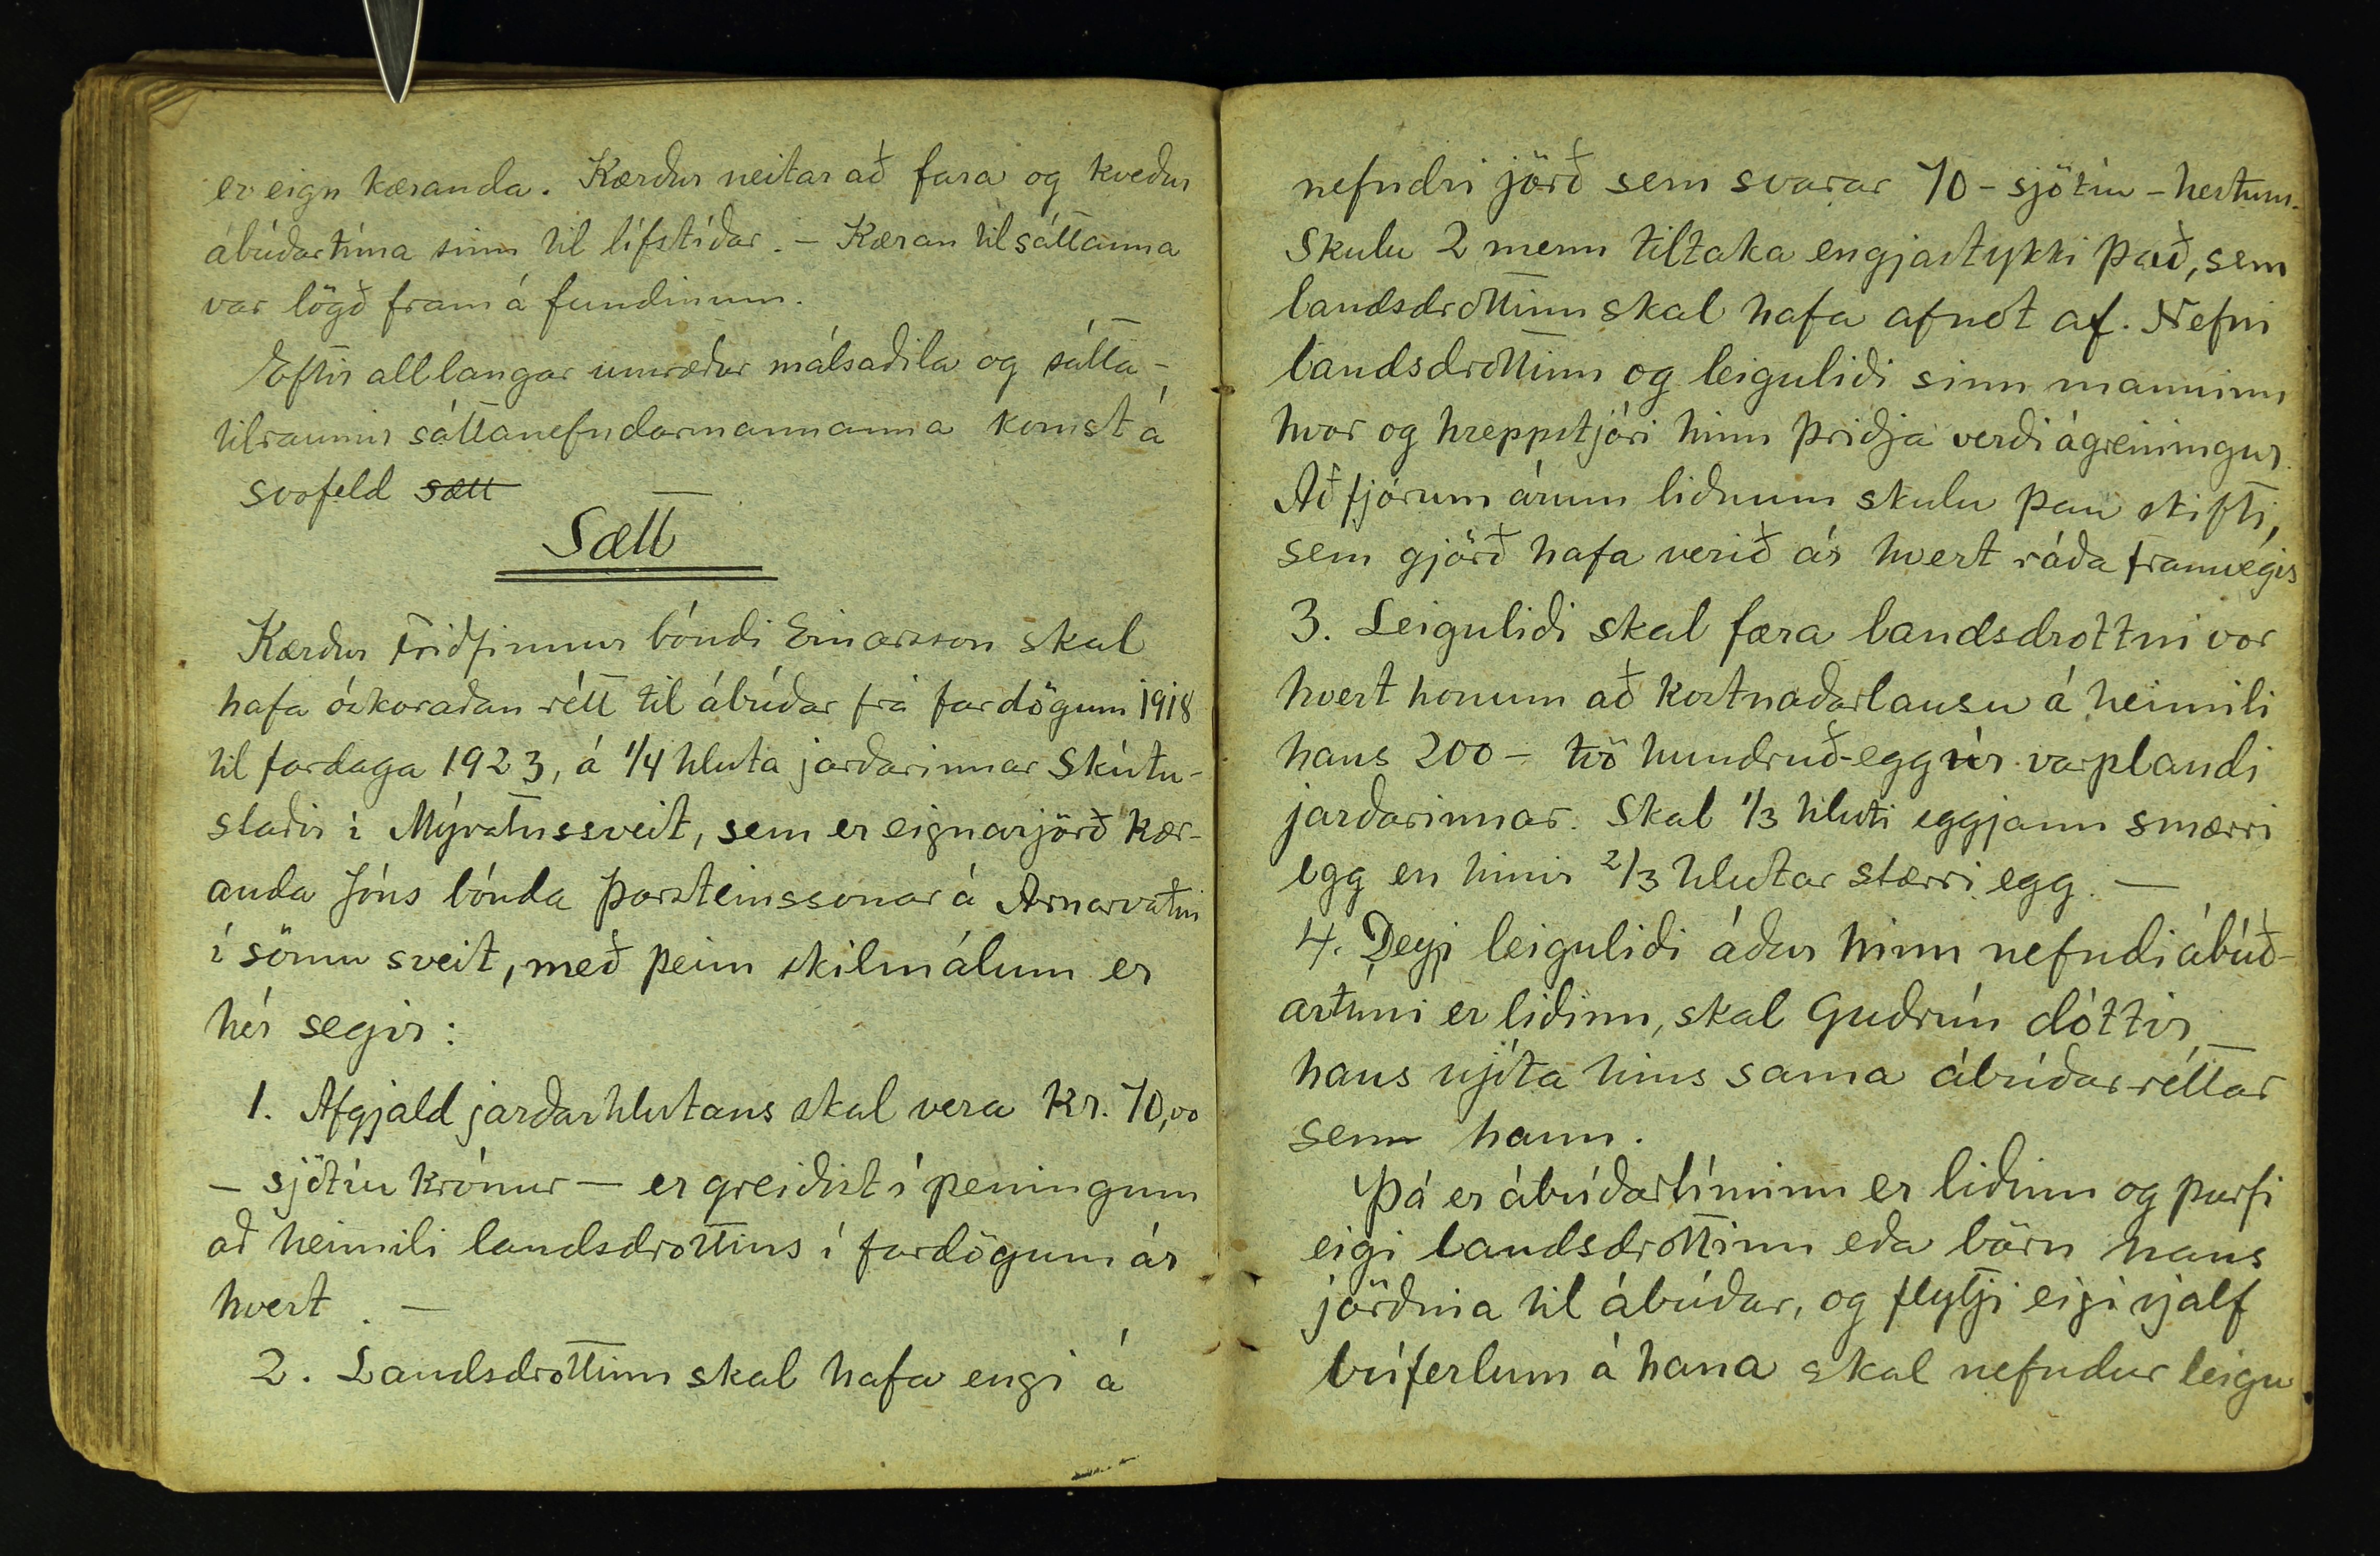 er eign kæranda. Kærður neitar að fara og kveður
ábúðartíma sinn til lífstíðar. – Kæran til sáttanna
var lögð fram á fundinum.
Eftir all langar umræður málsaðila og sátta-
tilraunir sáttanefndarmannanna komst á
svofeld sætt
Sætt
Kærður Friðfinnur bóndi Einarsson skal
hafa óskoraðan rétt til ábúðar frá fardögum 1918
til fardaga 1923, á 1/4 hluta jarðarinnar Skútu-
staðir í Mývatnssveit, sem er eignarjörð kær-
anda Jóns bónda Þorsteinssonar á Arnarvatni
í sömu sveit, með þeim skilmálum er
hér segir:
1. Afgjald jarðarhlutans skal vera kr. 70,00
– sjötíu krónur – er greiðist í peningum
að heimili landsdrottins í fardögum ár
hvert. –
2. Landsdrottinn skal hafa engi á
nefndri jörð sem svarar 70 - sjötíu - hestum.
Skulu 2 menn tiltaka engjastykki það, sem
landsdrottinn skal hafa afnot af. Nefni
landsdrottinn og leiguliði sinn manninn
hvor og hreppstjóri hinn þriðja verði ágreiningur.
Að fjórum árum liðnum skulu þau skifti,
sem gjörð hafa verið ár hvert ráða framvegis
3. Leiguliði skal færa landsdrottni vor
hvert honum að kostnaðarlausu á heimili
hans 200 – tvö hundruð - egg úr varplandi
jarðarinnar. Skal 1/3 hluti eggjann smærri
egg en hinir 2/3 hlutar stærri egg. –
4. Deyi leiguliði áður hinn nefndi ábúð-
artími er liðinn, skal Guðrún dóttir
hans njóta hins sama ábúðarréttar
sem hann.
Þá er ábúðartíminn er liðinn og þurfi
eigi landsdrottinn eða börn hans
jörðina til ábúðar, og flytji eigi sjálf
búferlum á hana skal nefndur leigu